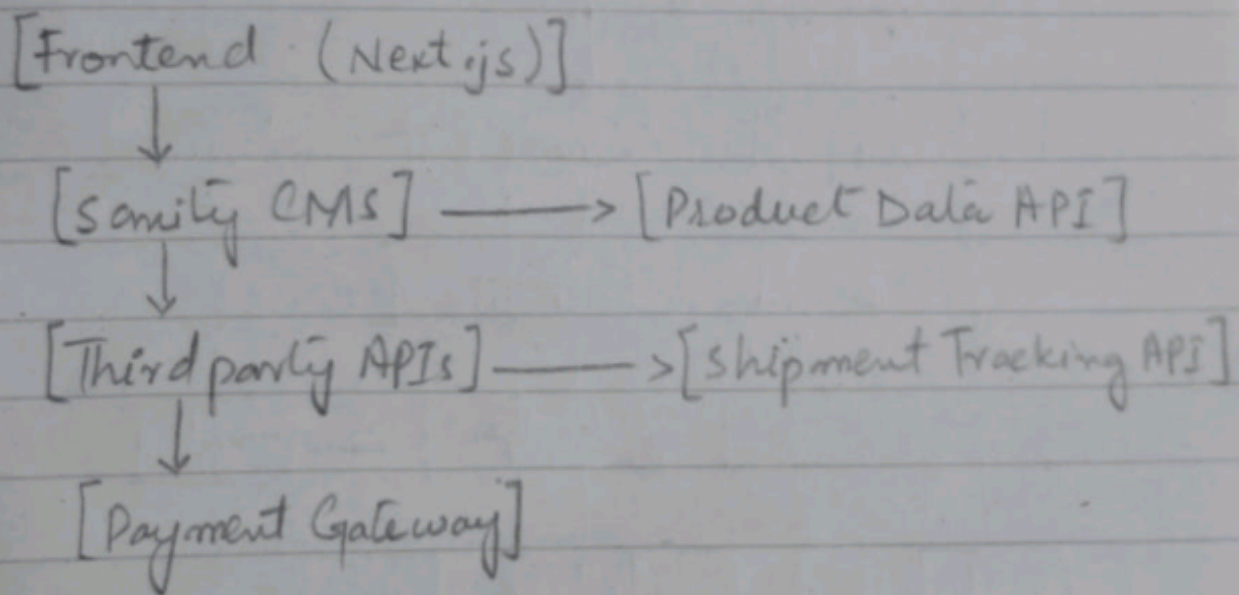 [Frontend (Next.js)]
[Sanity CMS] → [Product Data API]
[Third party APIs] → [Shipment Tracking API]
[Payment Gateway]